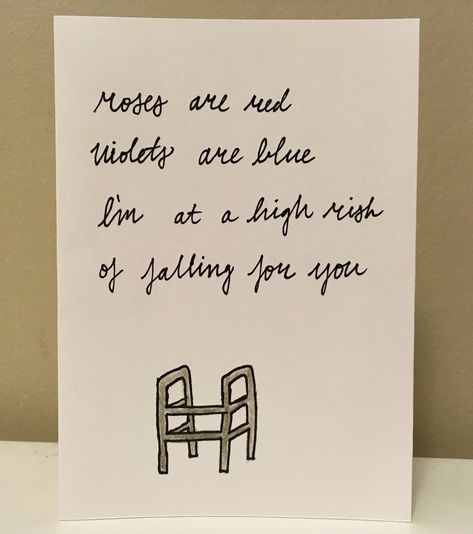 roses are red
violets are blue
I'm at a high risk
of falling for you